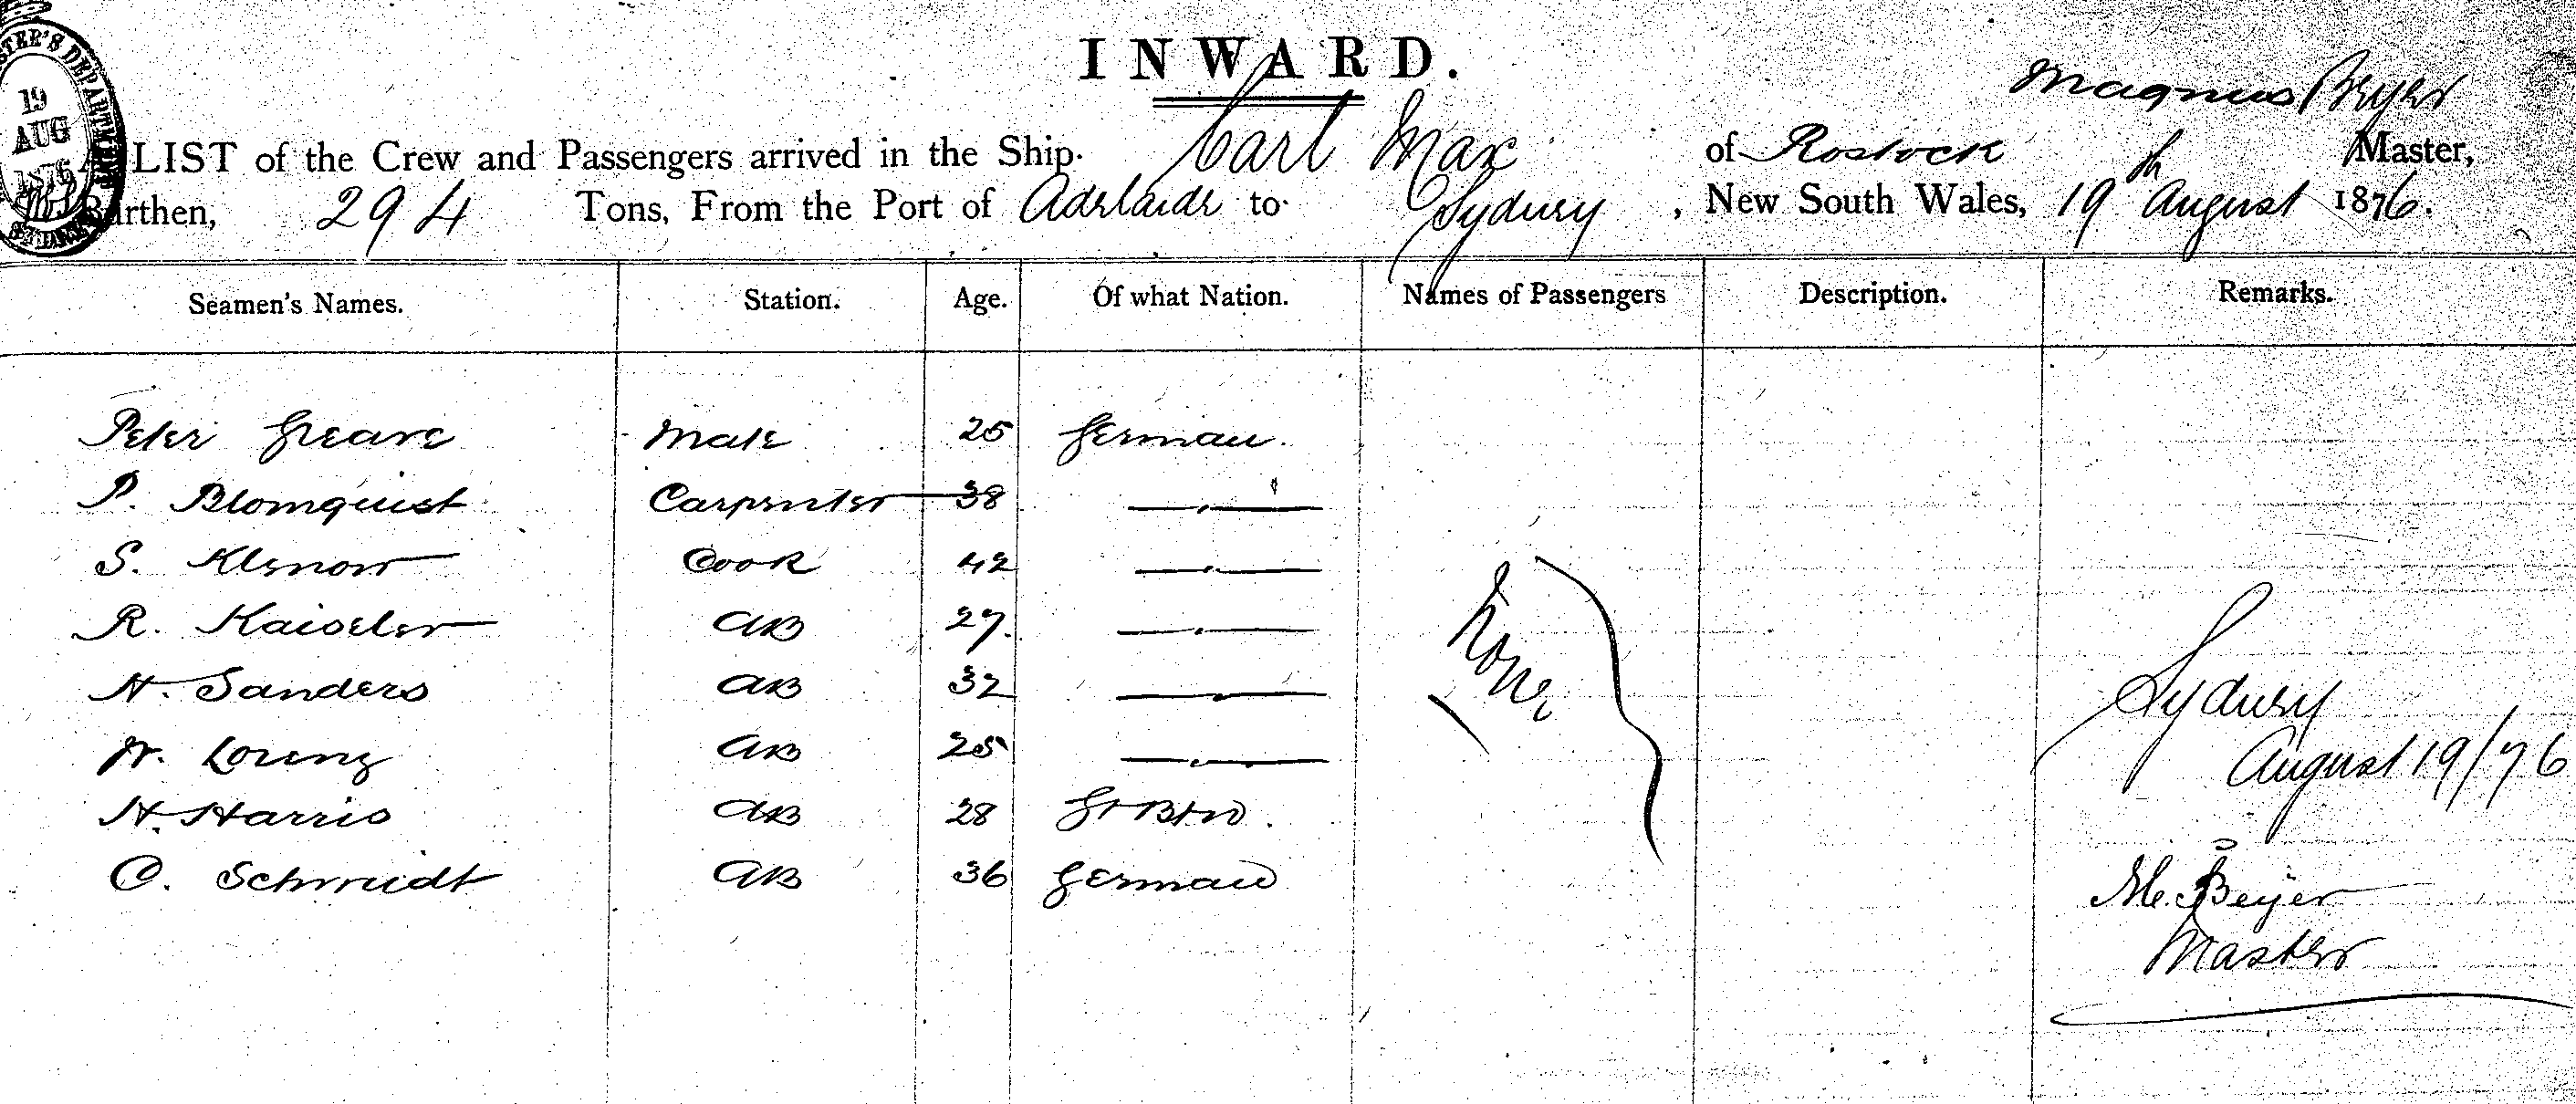 INWARD.
Magnus Beyer
A LIST of the Crew and Passengers arrived in the Ship Carl Max of Rostock Master,
Burthen, 294 Tons, From the Port of Adelaide to Sydney, New South Wales, 19th August 1876.
19
AUG
1876
Seamen's Names. Station. Age. Of what Nation. Names of Passengers Description. Remarks.
Peter Greave Mate 25 German.
P. Blomquist Carpenter 38 —"—
S. Klenow Cook 42 —"—
R. Kaiseler AB 27. —"—
H. Sanders AB 32 —"—
W. Lorenz AB 25 —"—
H. Harris AB 28 Gt Btn.
C. Schmidt AB 36 German
None
Sydney
August 19/76
M. Beyer
Master